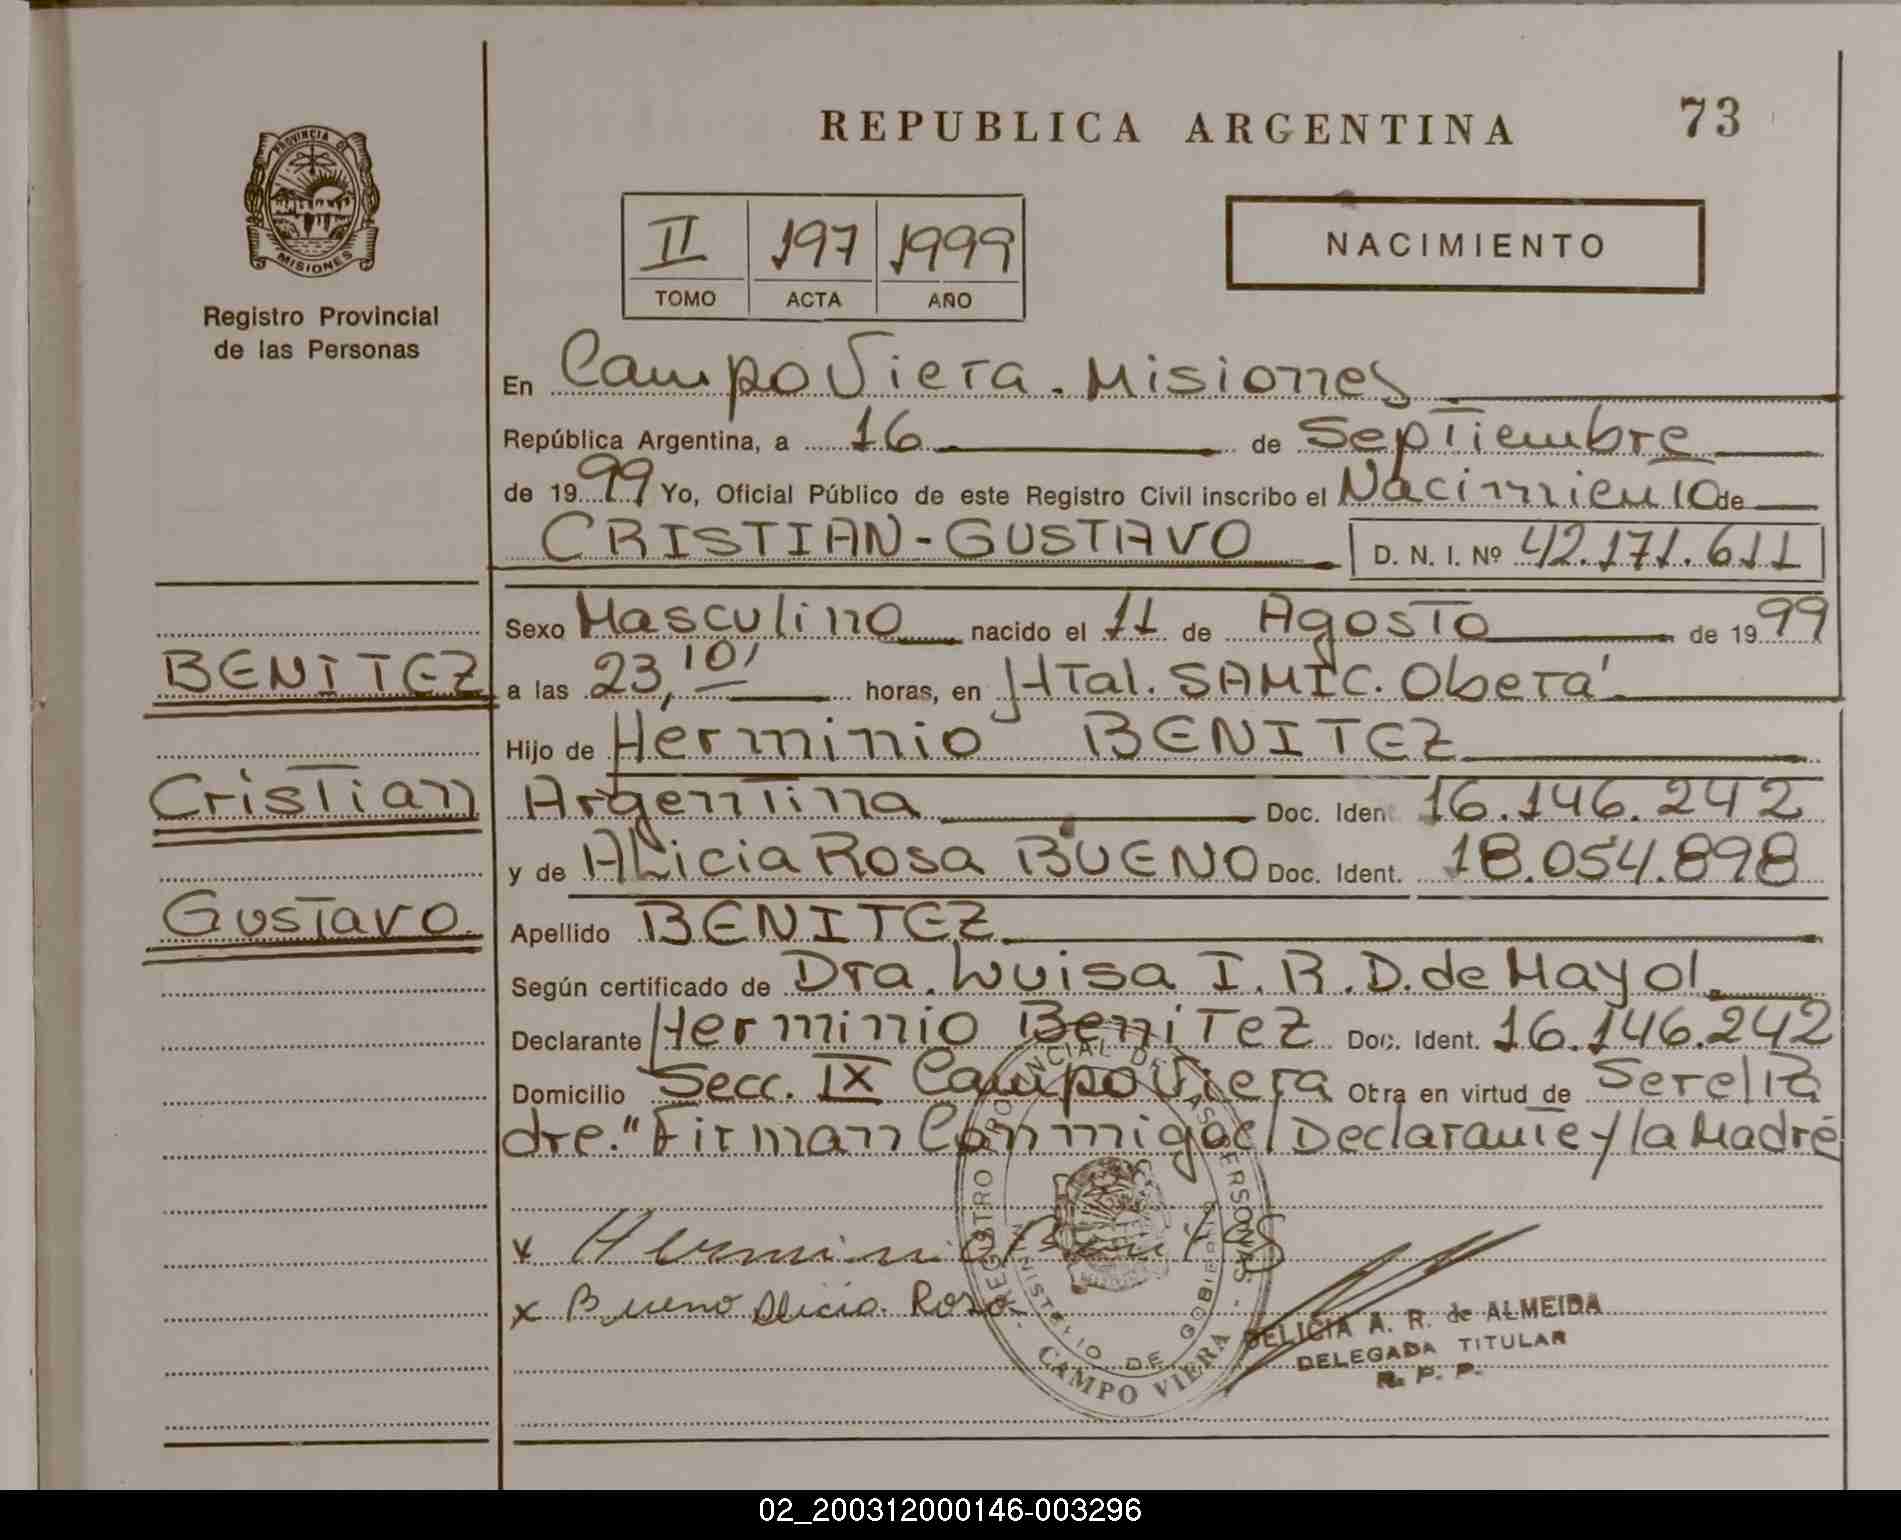 REPUBLICA ARGENTINA
73
PROVINCIA DE
MISIONES
Registro Provincial
de las Personas
II 197 1999
TOMO ACTA AÑO
NACIMIENTO
En Campo Viera. Misiones
República Argentina, a 16 de Septiembre
de 1999 Yo, Oficial Público de este Registro Civil inscribo el Nacimiento de
CRISTIAN-GUSTAVO D. N. I. Nº 42.171.611
Sexo Masculino nacido el 11 de Agosto de 1999
BENITEZ
a las 23,10' horas, en HTal. SAMIC. Oberá
Hijo de Herminio BENITEZ
Cristian
Argentina Doc. Ident 16.146.242
y de ALicia Rosa BUENO Doc. Ident. 18.054.898
Gustavo
Apellido BENITEZ
Según certificado de Dra. Luisa I. R. D. de Mayol
Declarante Herminio BeniTez Doc. Ident. 16.146.242
Domicilio Secc. IX Campo Viera Obra en virtud de Ser el Pa
dre." Firman Conmigo el Declarante y la Madre
x Herminio Benitez
x Bueno Alicia Rosa
REGISTRO PROVINCIAL DE LAS PERSONAS
MINISTERIO DE GOBIERNO
CAMPO VIERA
DELICIA A. R. de ALMEIDA
DELEGADA TITULAR
R. P. P.
02_200312000146-003296